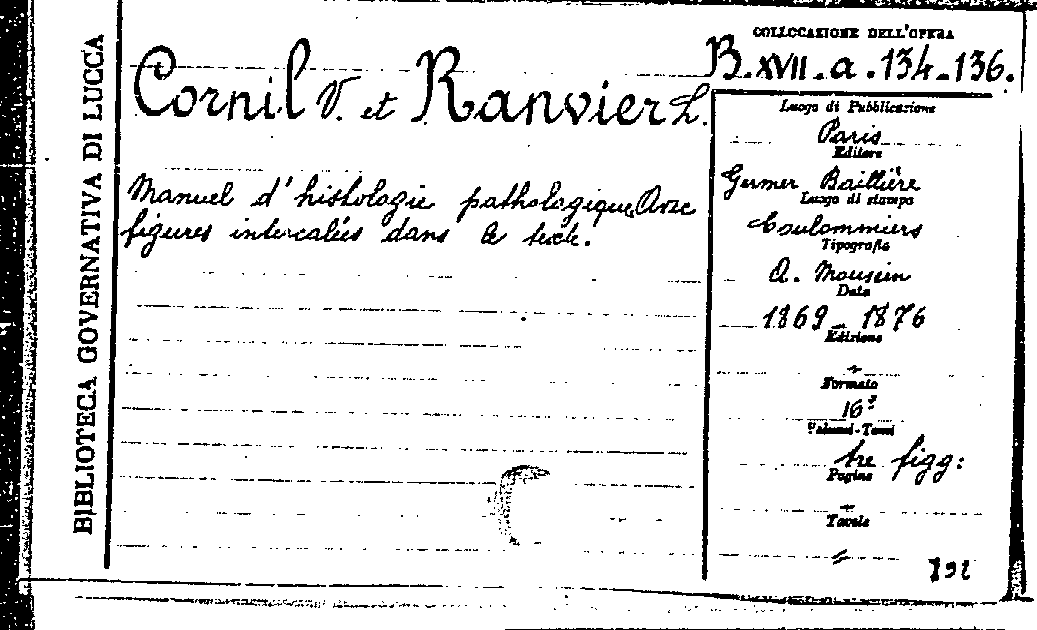 BIBLIOTECA GOVERNATIVA DI LUCCA
COLLOCAZIONE DELL'OPERA
B.XVII.a.134-136.
Cornil V. et Ranvier L.
Manuel d'histologie pathologique. Avec
figures intercalées dans le texte.
Luogo di Pubblicazione
Paris
Editore
Germer Baillière
Luogo di stampa
Coulommiers
Tipografia
A. Moussin
Data
1869-1876
Edizione
Formato
16º
Volumi-Tomi
tre figg:
Pagine
Tavole